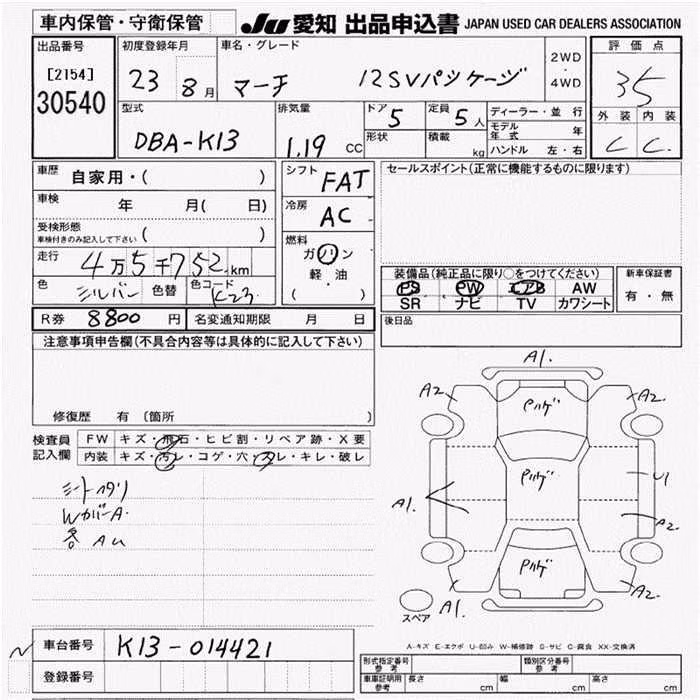 車内保管・守衛保管
JU 愛知 出品申込書 JAPAN USED CAR DEALERS ASSOCIATION
出品番号
[2154]
30540
初度登録年月
23 8月
車名・グレード
マーチ 12SVパッケージ
2WD
・
4WD
評価点
35
外装 内装
C C
型式
DBA-K13
排気量
1.19 CC
ドア 5
形状
定員 5人
積載 kg
ディーラー・並行
モデル年式 年
ハンドル 左・右
車歴 自家用・( )
車検 年 月( 日)
受検形態
車検付きのみ記入して下さい ( )
走行 4万5千752km
色 シルバー 色替 色コード K23
シフト FAT
冷房 AC
燃料
ガソリン
軽・油
( )
セールスポイント(正常に機能するものに限ります)
装備品(純正品に限り○をつけてください)
PS PW エアB AW
SR ナビ TV カワシート
新車保証書
有・無
R券 8800円 名変通知期限 月 日
後日品
注意事項申告欄(不具合内容等は具体的に記入して下さい)
修復歴 有〔箇所 〕
検査員
記入欄
FW キズ・飛石・ヒビ割・リペア跡・X要
内装 キズ・汚レ・コゲ・穴・スレ・キレ・破レ
シートヘタリ
WカバーA
各 AU
A1.
A2 A2.
Pハゲ
Pハゲ
U1
A1. A2
Pハゲ
A2.
スペア A1.
A-キズ E-エクボ U-凹み W-補修跡 S-サビ C-腐食 XX-交換済
車台番号 K13-014421
登録番号
型式指定番号
参考
類別区分番号
参考
車庫証明用
参考
長さ cm 幅 cm 高さ cm